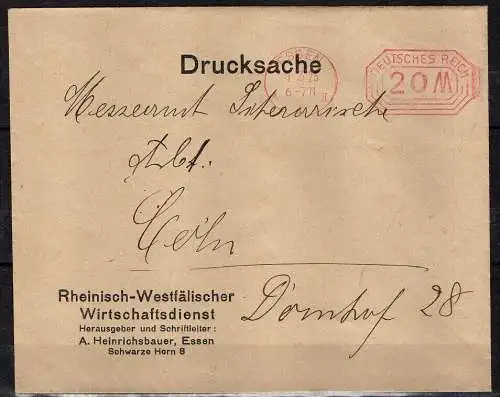 Drucksache
6-7N
DEUTSCHES REICH
20 M
Messeamt Literarische
Abt.
Cöln
Domhof 28
Rheinisch-Westfälischer
Wirtschaftsdienst
Herausgeber und Schriftleiter:
A. Heinrichsbauer, Essen
Schwarze Horn 8